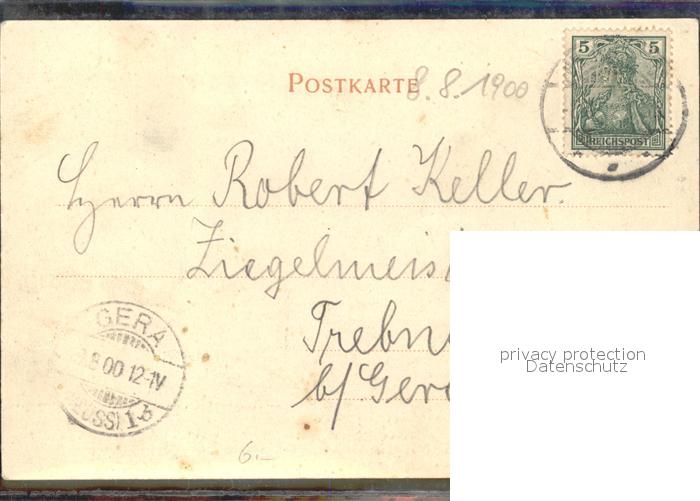 POSTKARTE 8.8.1900
5 5
REICHSPOST
Herrn Robert Keller.
Ziegelmeis
Trebn
b/Gera
GERA
8.00 12-1V
1.b
6.-
privacy protection
Datenschutz